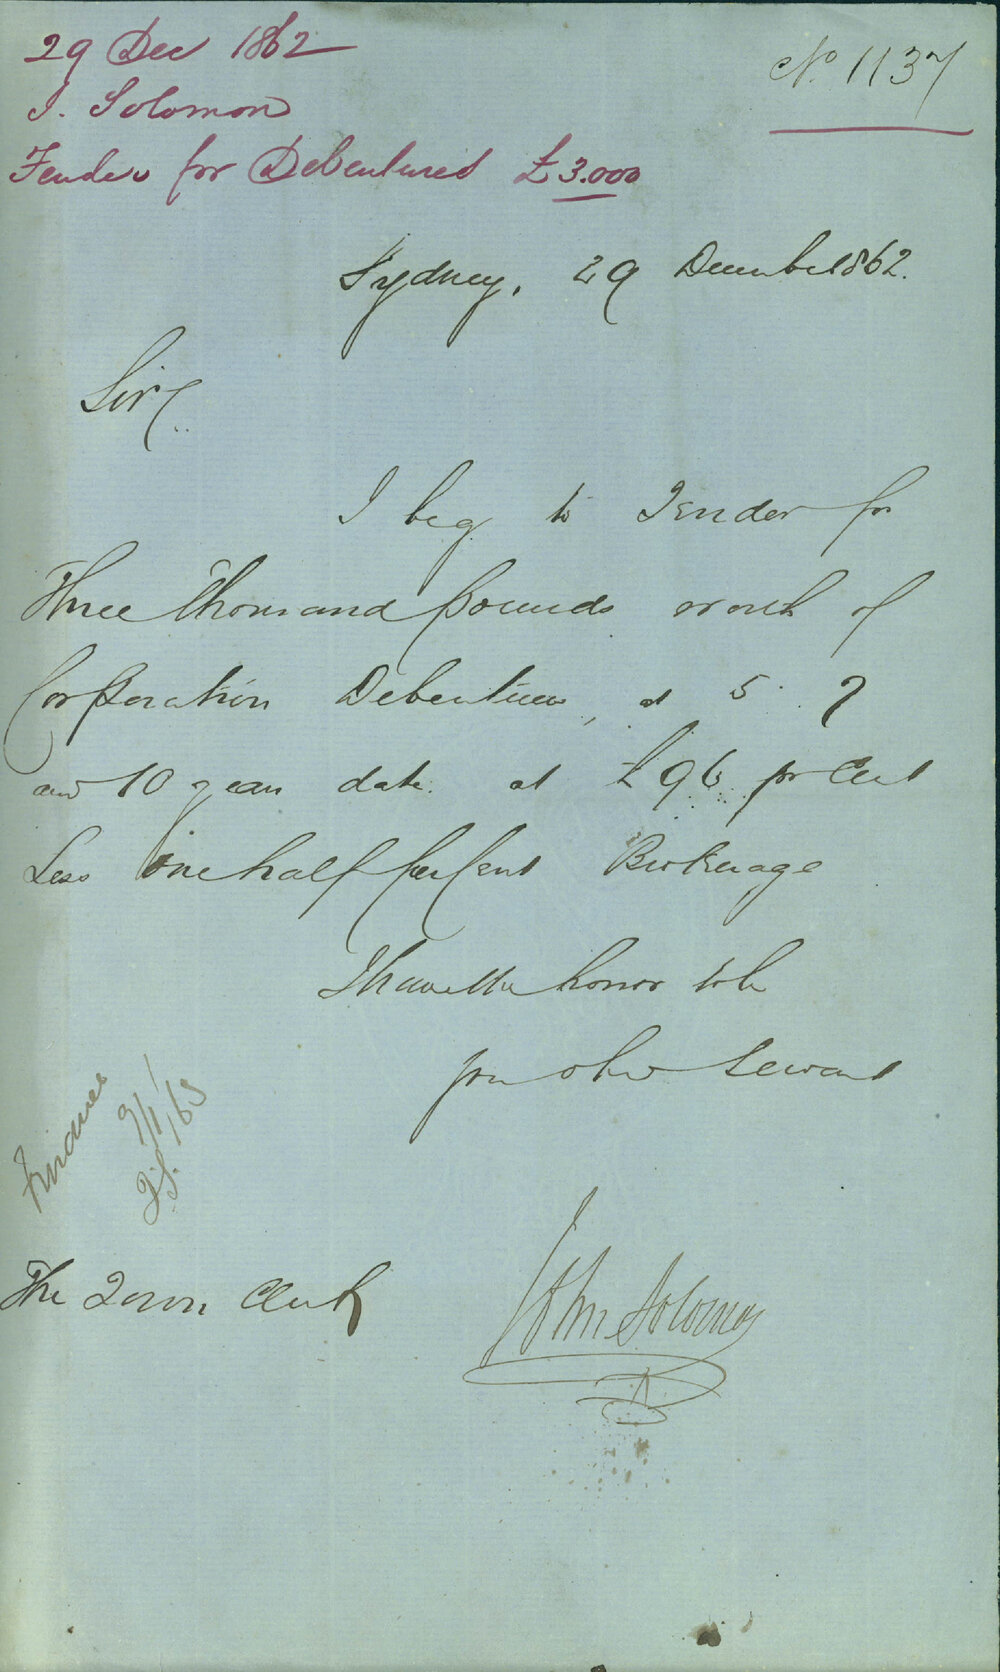 29 Dec 1862
J. Solomon
Tender for Debentures £3.000
No. 1137
Sydney, 29 December 1862.
Sir
I beg to Tender for
Three Thousand pounds worth of
Corporation Debentures, at 5. 7
and 10 years date. at £96 pr Cent
Less One half per Cent Brokerage
I have the honor to be
your obt Servant
Finance
9/1/63
The Town Clerk
John Solomon